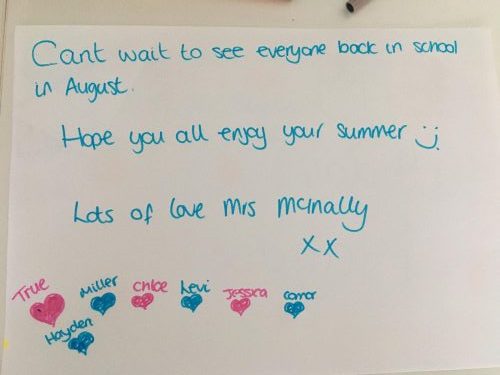 Cant wait to see everyone back in school
in August.
Hope you all enjoy your summer :)
Lots of love Mrs McInally
xx
True Miller Chloe Levi Jessica Conor
Hayden